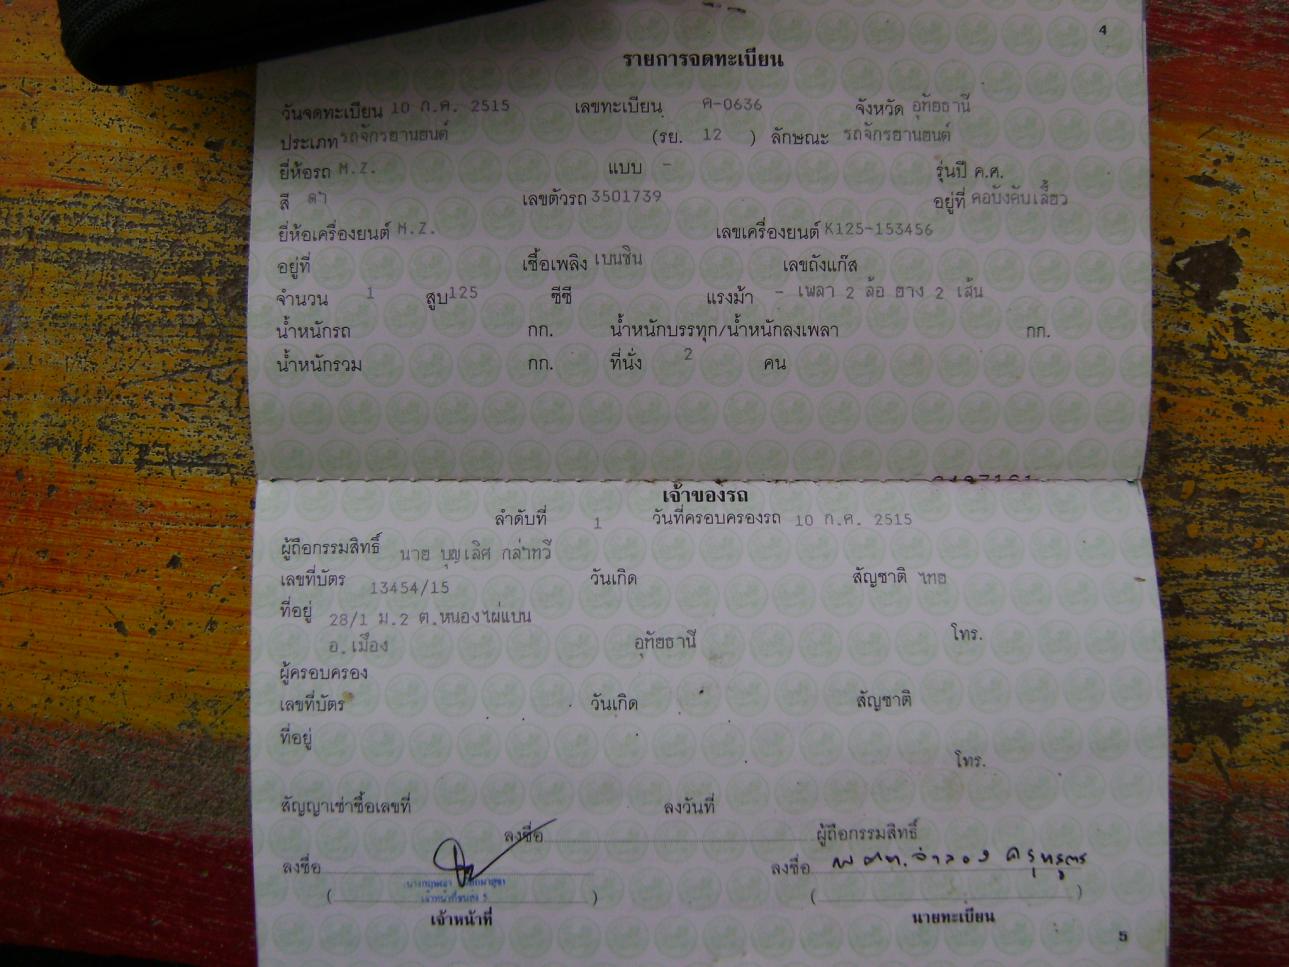 4
รายการจดทะเบียน
วันจดทะเบียน 10 ก.ค. 2515 เลขทะเบียน ค-0636 จังหวัด อุทัยธานี
ประเภท รถจักรยานยนต์ (รย. 12 ) ลักษณะ รถจักรยานยนต์
ยี่ห้อรถ M.Z. แบบ - รุ่นปี ค.ศ.
สี ดำ เลขตัวรถ 3501739 อยู่ที่ คอบังคับเลี้ยว
ยี่ห้อเครื่องยนต์ M.Z. เลขเครื่องยนต์ K125-153456
อยู่ที่ เชื้อเพลิง เบนซิน เลขถังแก๊ส
จำนวน 1 สูบ 125 ซีซี แรงม้า - เพลา 2 ล้อ ยาง 2 เส้น
น้ำหนักรถ กก. น้ำหนักบรรทุก/น้ำหนักลงเพลา กก.
น้ำหนักรวม กก. ที่นั่ง 2 คน
เจ้าของรถ
ลำดับที่ 1 วันที่ครอบครองรถ 10 ก.ค. 2515
ผู้ถือกรรมสิทธิ์ นาย บุญเลิศ กล่ำทวี
เลขที่บัตร 13454/15 วันเกิด สัญชาติ ไทย
ที่อยู่ 28/1 ม.2 ต.หนองไผ่แบน
อ.เมือง อุทัยธานี โทร.
ผู้ครอบครอง
เลขที่บัตร วันเกิด สัญชาติ
ที่อยู่
โทร.
สัญญาเช่าซื้อเลขที่ ลงวันที่
ลงชื่อ ผู้ถือกรรมสิทธิ์
ลงชื่อ ลงชื่อ พ.ต.ท.จำลอง
( ) ( )
เจ้าหน้าที่ขนส่ง 5
เจ้าหน้าที่ นายทะเบียน
5